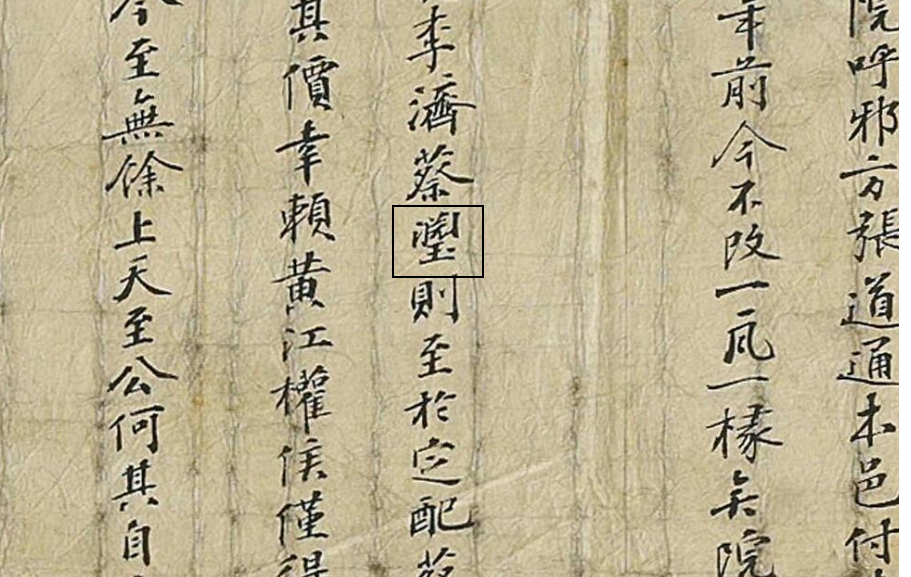 院呼邪方張道通本邑付
年前今不改一瓦一椽矣院
李濟蔡則至於定配蔡
其價幸賴黃江權侯僅得
今至無餘上天至公何其自